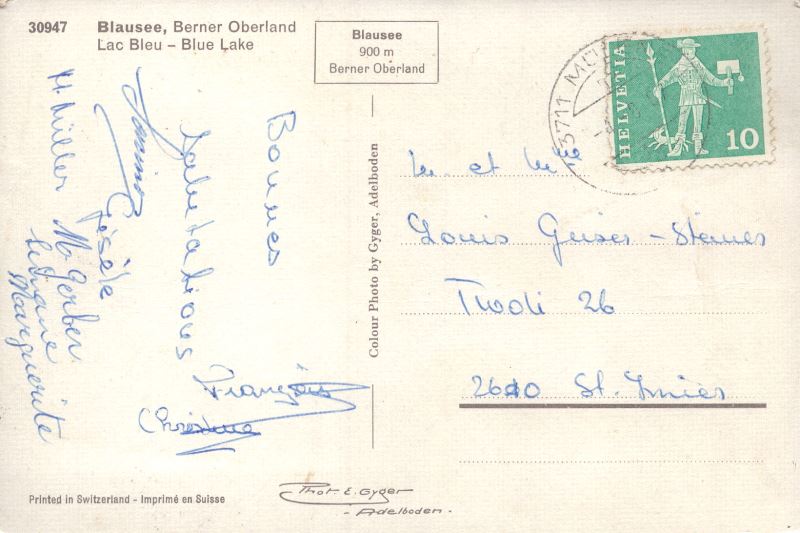 30947 Blausee, Berner Oberland
Lac Bleu – Blue Lake
Blausee
900 m
Berner Oberland
HELVETIA
10
3711
Bonnes
Salutations
Gisèle
H. Müller M. Gerber
Marguerite
François
Christine
Colour Photo by Gyger, Adelboden
Mr. et Mme
Louis Geiser-Steiner
Tivoli 26
2610 St. Imier
Printed in Switzerland - Imprimé en Suisse
Phot. E. Gyger
- Adelboden -